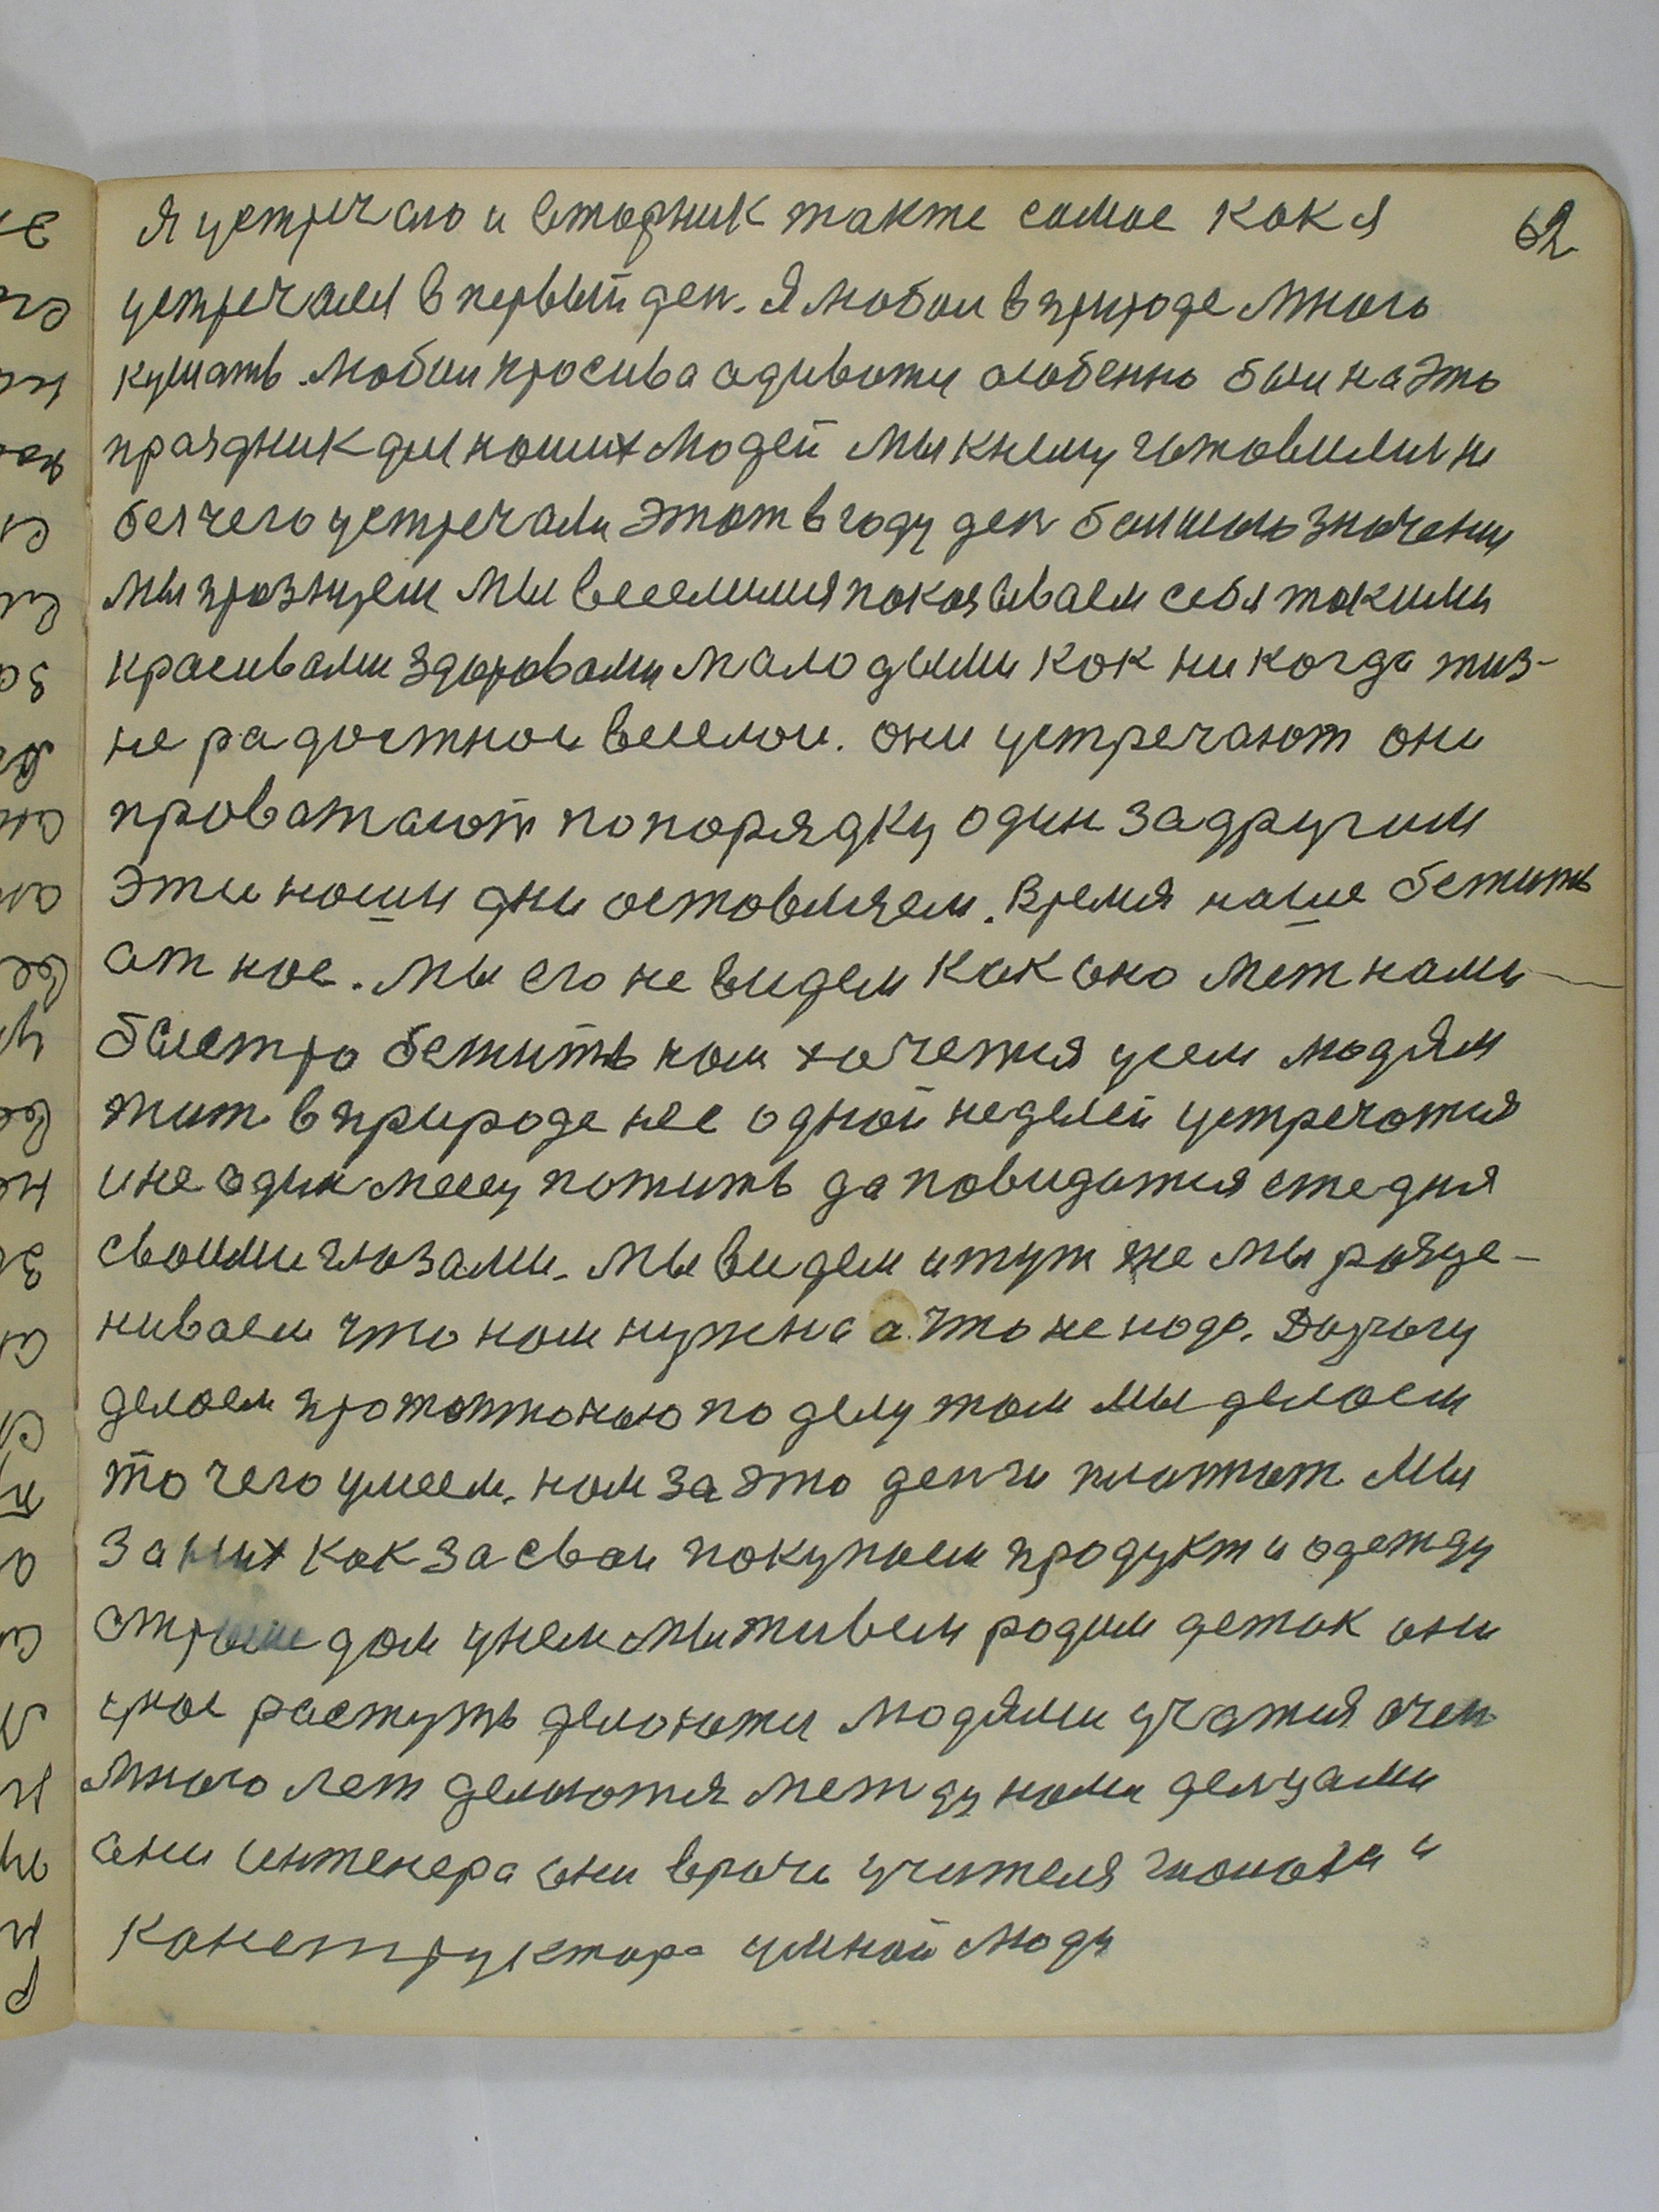 я устречаю и вторник такте самое как я 62
устречался в первый ден. Я любой в природе много
кушать. Любил красива адиватця асобенно был на это
праздник для наших людей мы кнему готовилися не
без чего устречали этот в году ден балшого значения
мы празнуем мы веселимся показываем себя такими
красивами здоровами маладыми как ни когда жиз-
не радостной веселой. они устречают они
проважают по порядку один за другим
эти наши дни оставляем. Время наше бежить
ат нас. мы его не видем как оно меж нами
быстро бежить нам хочется усем людям
жит в природе не с одной неделей устречатця
и не один месец пожить да повидатця ежедня
своими глазами. мы видем и тут же мы разце-
ниваем что нам нужна а что не надо. Дарогу
делаем протоптаною по делу том мы делаем
то чего умеем. нам за это денги платют мы
за них как за свои покупаем продукт и одежду
строим дом унем мы живем родим деток они
унас растуть делаютця людями учатся очен
много лет делаются между нами делцами
они интенера они врачи учителя и
канструктора умной люди